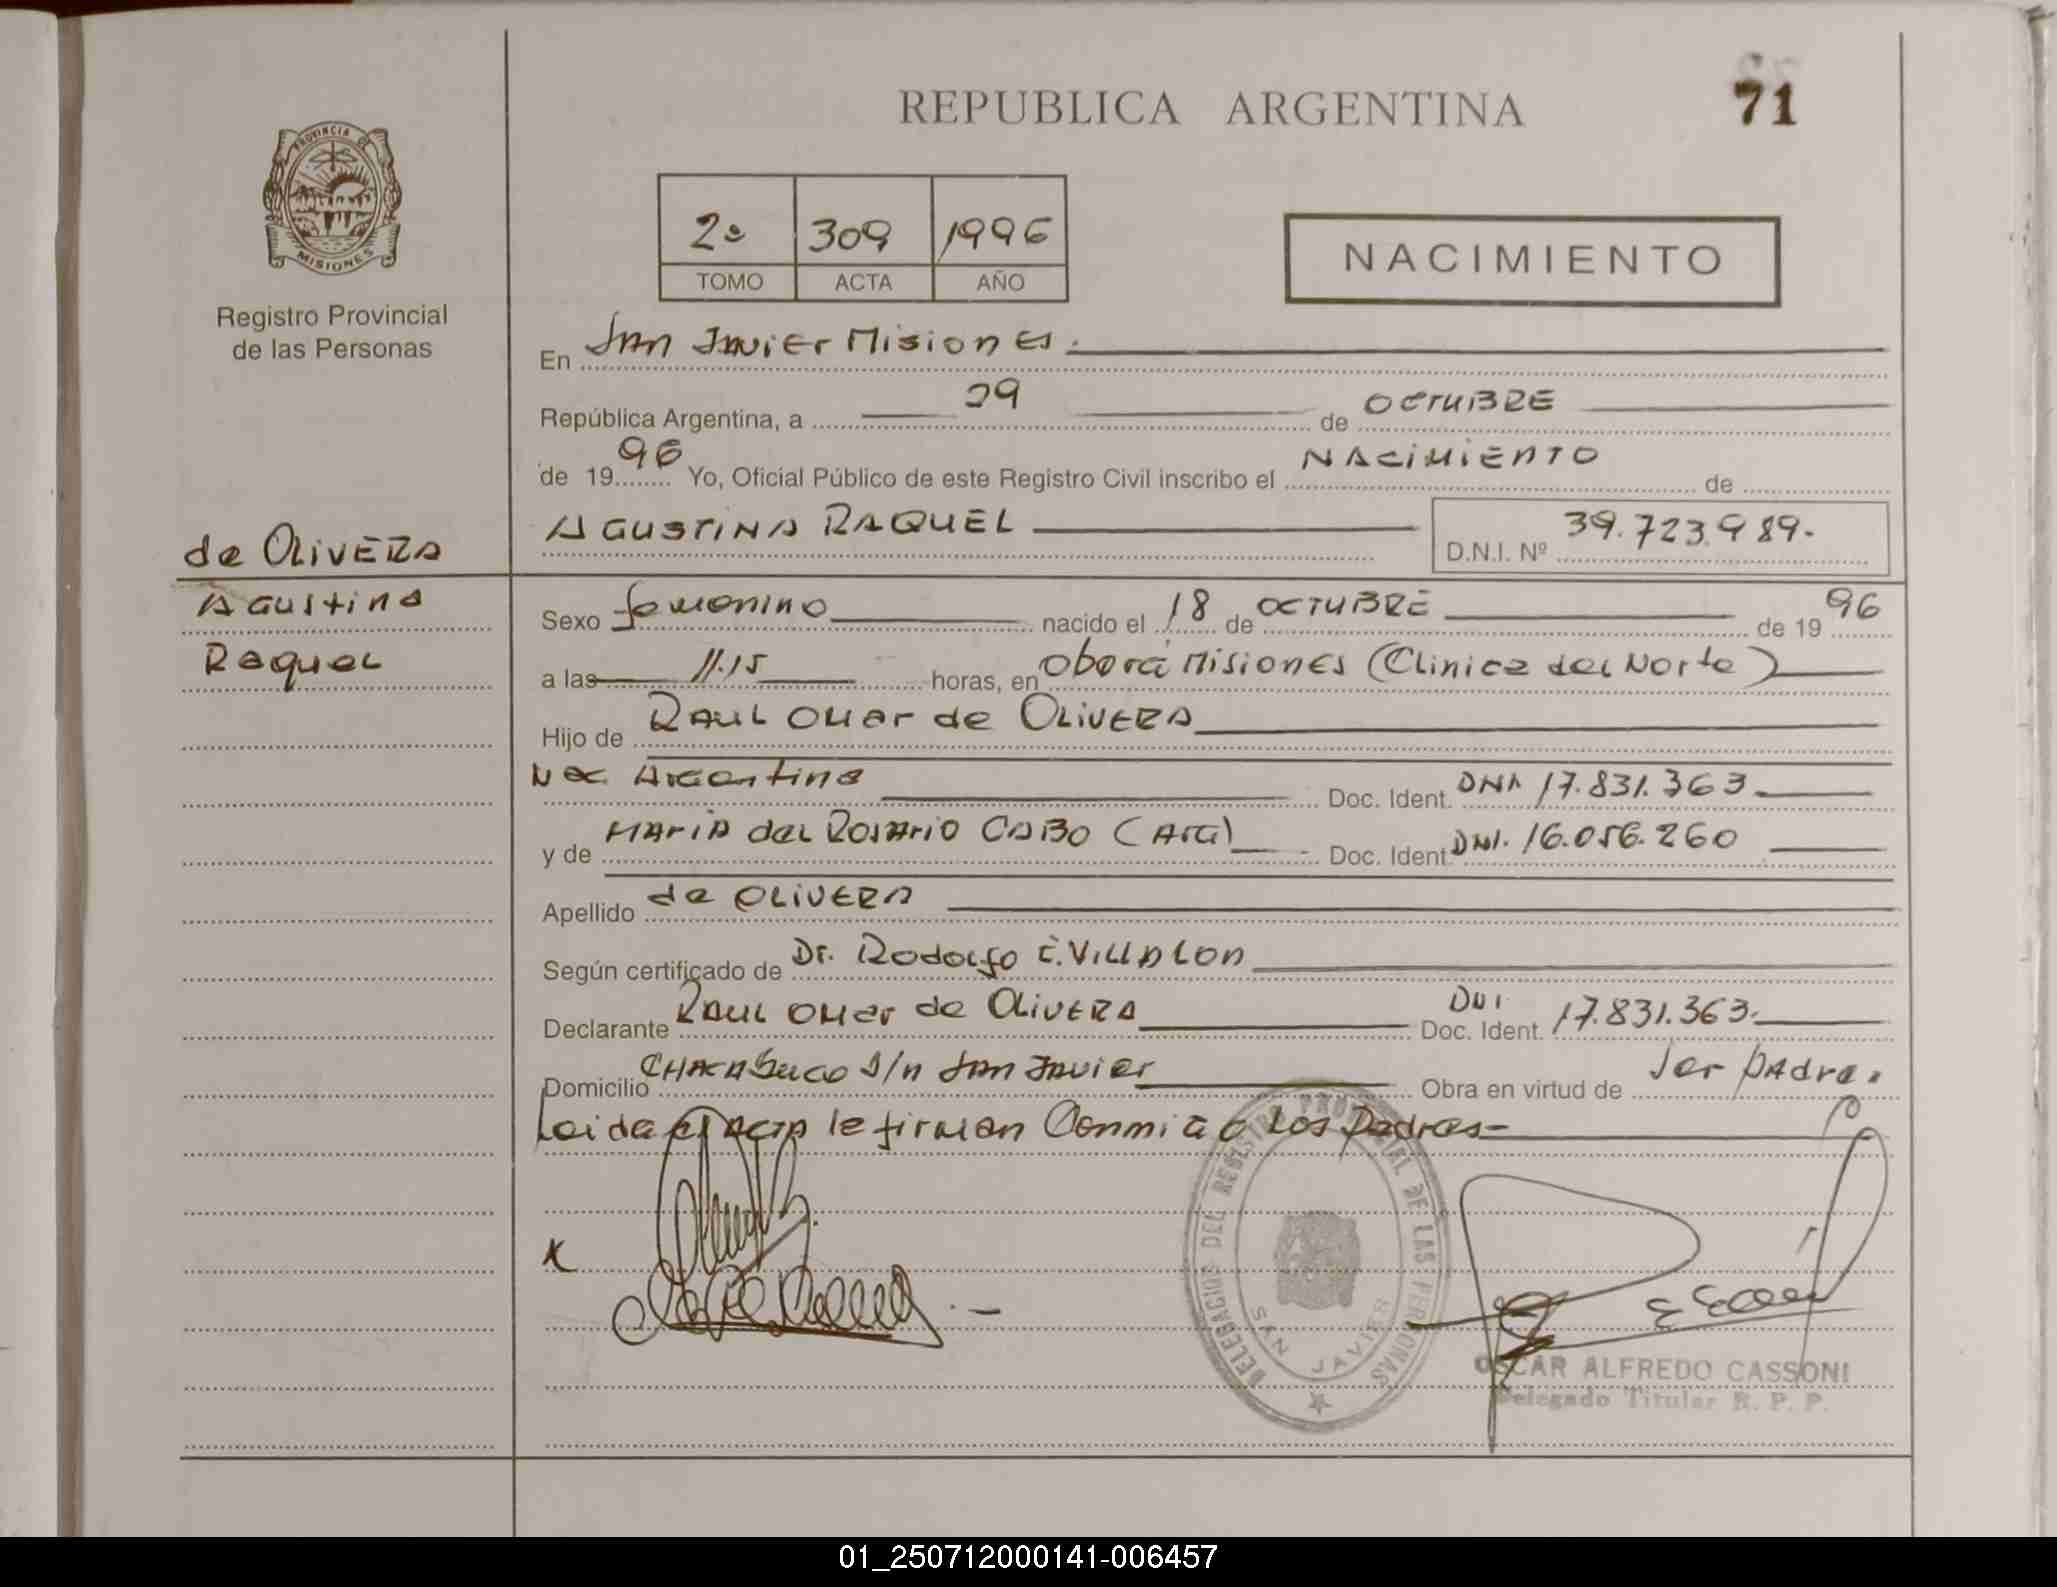 REPUBLICA ARGENTINA
71
PROVINCIA DE
MISIONES
Registro Provincial
de las Personas
2º 309 1996
TOMO ACTA AÑO
NACIMIENTO
En San Javier Misiones.
República Argentina, a 29 de OCTUBRE
de 1996 Yo, Oficial Público de este Registro Civil inscribo el NACIMIENTO de
de OLIVERA
AGUSTINA RAQUEL
D.N.I. Nº 39.723.989.-
Agustina
Raquel
Sexo femenino nacido el 18 de OCTUBRE de 1996
a las 11.15 horas, en Oberá Misiones (Clinica del Norte)
Hijo de RAUL OMar de OLIVERA
Nac. Argentina Doc. Ident. DNI 17.831.363.
y de MARIA del ROSARIO CABO (ARG) Doc. Ident. DNI. 16.056.260
Apellido de OLIVERA
Según certificado de Dr. Rodolfo E. VILLALON
Declarante RAUL OMar de OLIVERA Doc. Ident. DNI 17.831.363.
Domicilio CHACABUCO S/n San Javier Obra en virtud de ser Padre.
Leida el Acta le firman Conmigo Los Padres-
x
DELEGACION DEL REGISTRO PROVINCIAL DE LAS PERSONAS
SAN JAVIER
OSCAR ALFREDO CASSONI
Delegado Titular R. P. P.
01_250712000141-006457